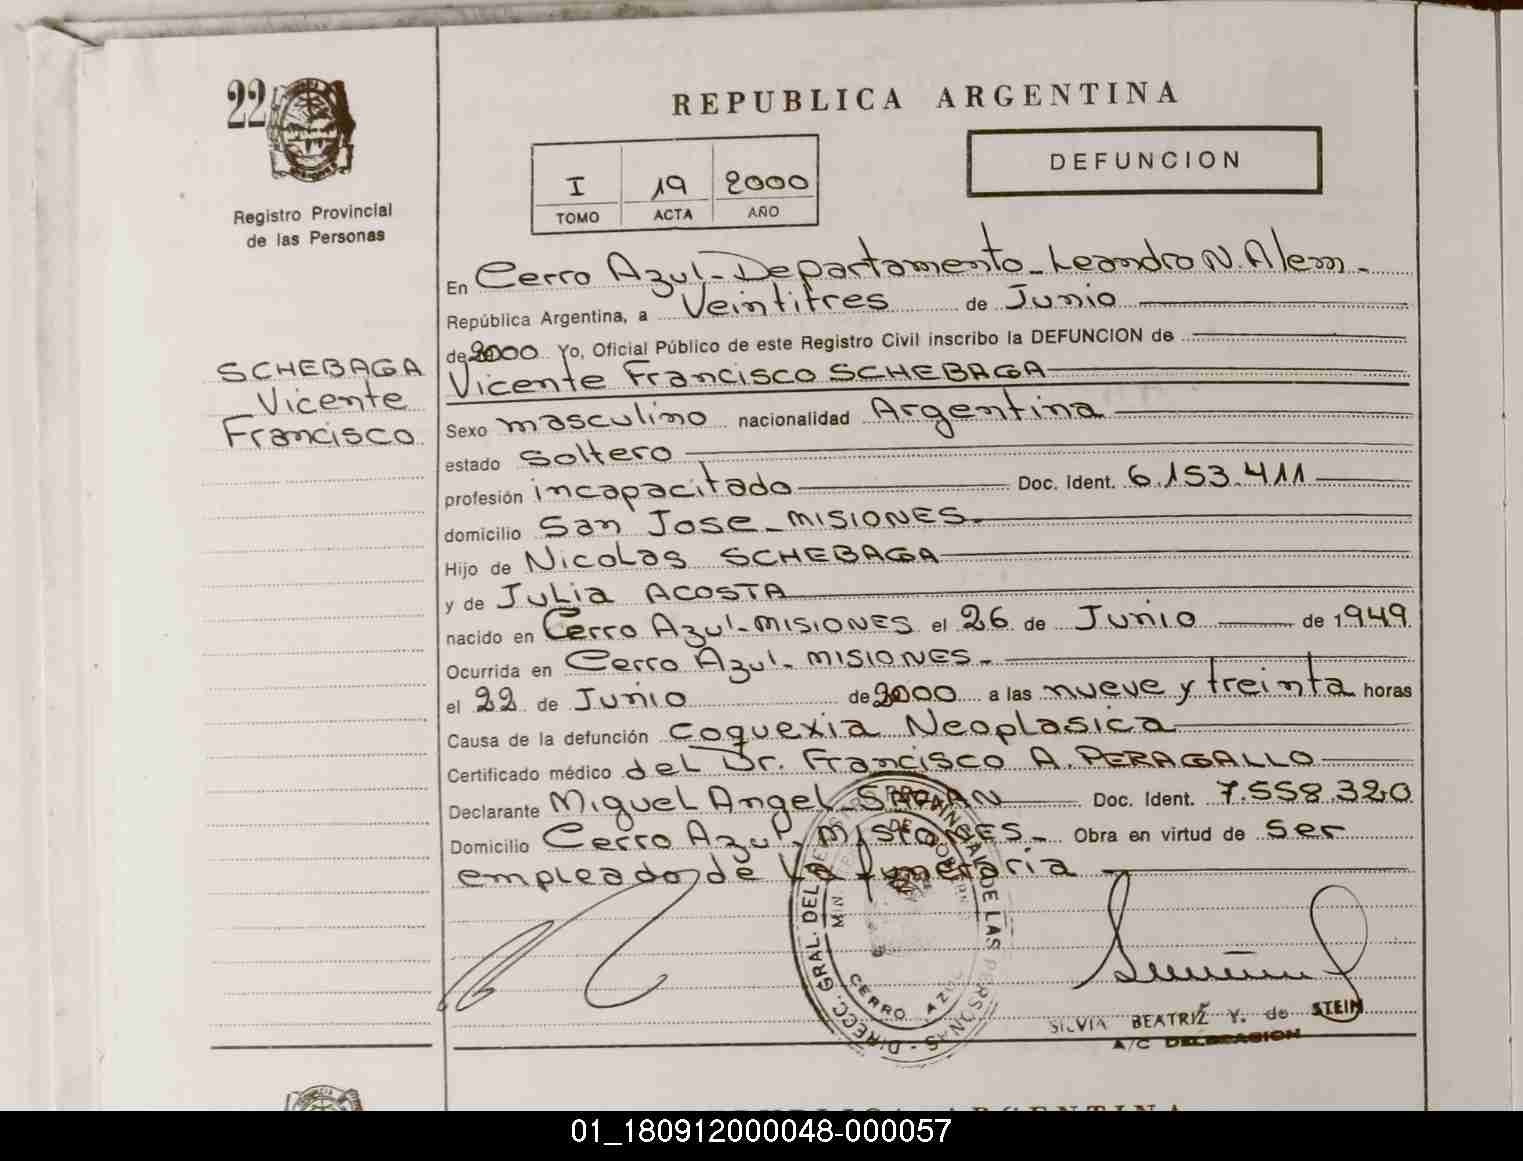 22
Registro Provincial
de las Personas
SCHEBAGA
Vicente
Francisco
REPUBLICA ARGENTINA
I 19 2000
TOMO ACTA AÑO
DEFUNCION
En Cerro Azul-Departamento-Leandro N. Alem-
República Argentina, a Veintitres de Junio
de 2000 Yo, Oficial Público de este Registro Civil inscribo la DEFUNCION de
Vicente Francisco SCHEBAGA
Sexo masculino nacionalidad Argentina
estado Soltero
profesión incapacitado Doc. Ident. 6.153.411
domicilio San Jose-MISIONES-
Hijo de Nicolas SCHEBAGA
y de Julia ACOSTA
nacido en Cerro Azul-MISIONES el 26 de Junio de 1949
Ocurrida en Cerro Azul-MISIONES-
el 22 de Junio de 2000 a las nueve y treinta horas
Causa de la defunción coquexia Neoplasica
Certificado médico del Dr. Francisco A. PERAGALLO
Declarante Miguel Angel Doc. Ident. 7.558.320
Domicilio Cerro Azul-MISIONES- Obra en virtud de ser
empleado de la funeraria
DIRECC. GRAL. DEL REGISTRO PROVINCIAL DE LAS PERSONAS
CERRO AZUL
SILVIA BEATRIZ Y. de STEIN
A/C DELEGACION
REPUBLICA ARGENTINA
01_180912000048-000057